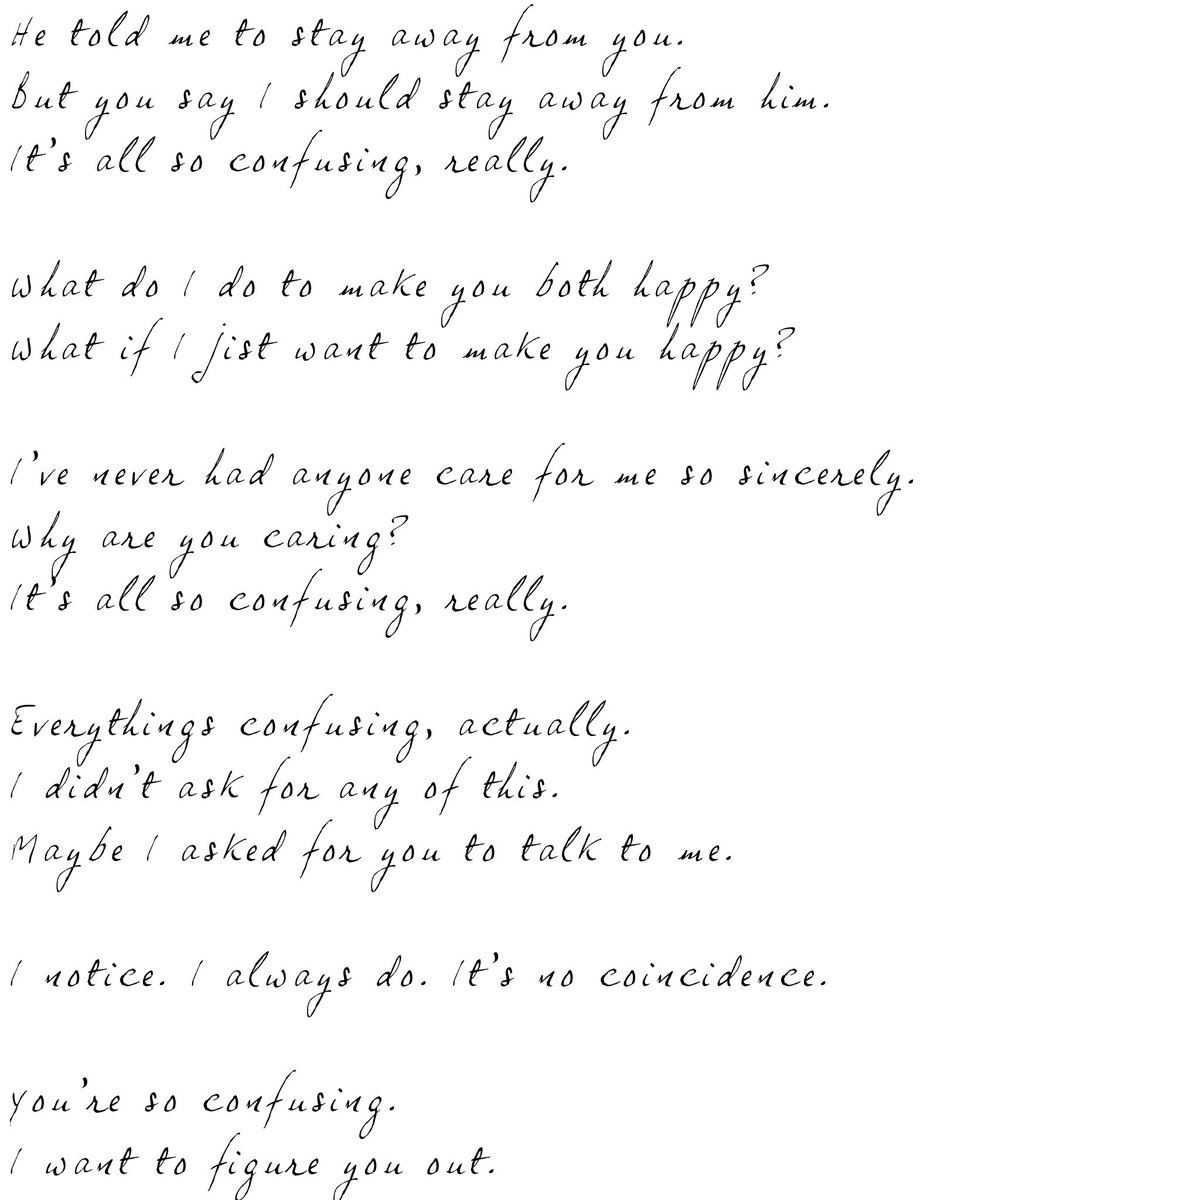 He told me to stay away from you.
But you say I should stay away from him.
It's all so confusing, really.
What do I do to make you both happy?
What if I jist want to make you happy?
I've never had anyone care for me so sincerely.
Why are you caring?
It's all so confusing, really.
Everythings confusing, actually.
I didn't ask for any of this.
Maybe I asked for you to talk to me.
I notice. I always do. It's no coincidence.
You're so confusing.
I want to figure you out.